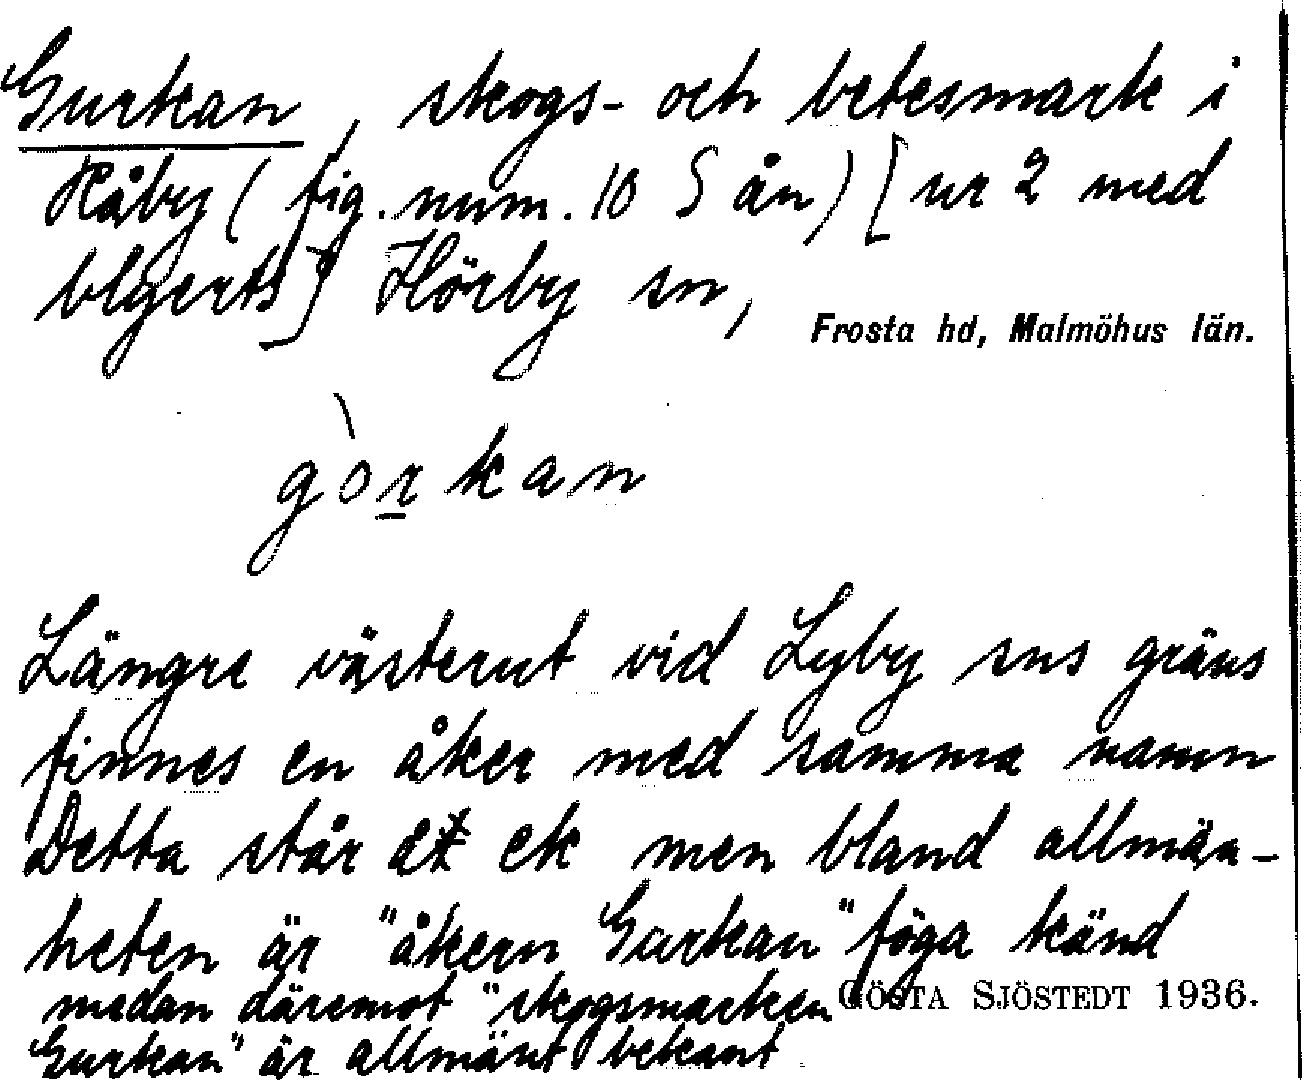 Gurkan, skogs- och betesmark i
Råby (fig. num. 10 S ån) [ur 2 med
blgerts] Hörby sn,
Frosta hd, Malmöhus län.
gòrkan
Längre västerut vid Lyby sns gräns
finnes en åker med samma namn
Detta står ek men bland allmän-
heten är "åkern Gurkan" föga känd
medan däremot "skogsmarken
GÖSTA SJÖSTEDT 1936.
Gurkan" är allmänt bekant